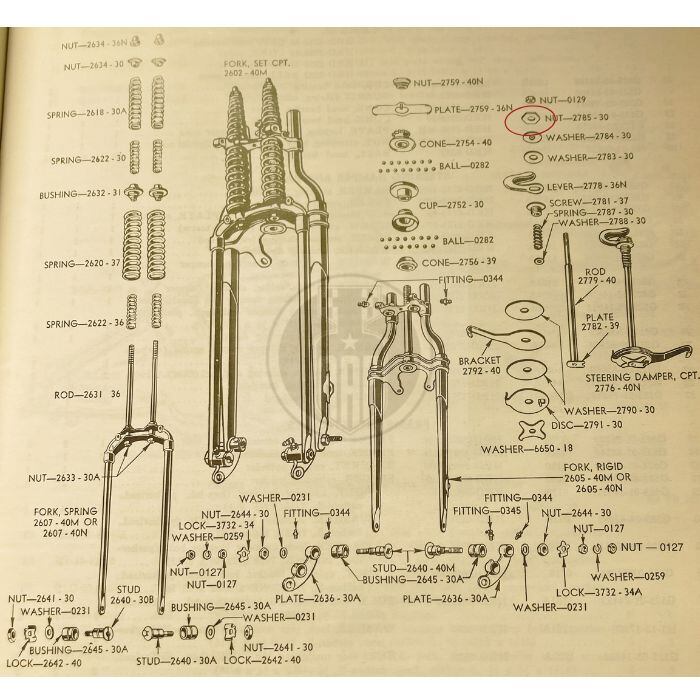 NUT—2634 - 36N
NUT—2634 - 30
SPRING—2618 - 30A
SPRING—2622 - 30
BUSHING—2632 - 31
SPRING—2620 - 37
SPRING—2622 - 36
ROD—2631 36
NUT—2633 - 30A
FORK, SPRING
2607 - 40M OR
2607 - 40N
FORK, SET CPT.
2602 - 40M
NUT—2759 - 40N
PLATE—2759 - 36N
CONE—2754 - 40
BALL—0282
CUP—2752 - 30
BALL—0282
CONE—2756 - 39
FITTING—0344
NUT—0129
NUT—2785 - 30
WASHER—2784 - 30
WASHER—2783 - 30
LEVER—2778 - 36N
SCREW—2781 - 37
SPRING—2787 - 30
WASHER—2788 - 30
ROD
2779 - 40
PLATE
2782 - 39
BRACKET
2792 - 40
STEERING DAMPER, CPT.
2776 - 40N
WASHER—2790 - 30
DISC—2791 - 30
WASHER—6650 - 18
FORK, RIGID
2605 - 40M OR
2605 - 40N
WASHER—0231
NUT—2644 - 30
FITTING—0344
LOCK—3732 - 34
WASHER—0259
NUT—0127
NUT—0127
PLATE—2636 - 30A
STUD
2640 - 40M
BUSHING—2645 - 30A
PLATE—2636 - 30A
FITTING—0344
FITTING—0345
NUT—2644 - 30
NUT—0127
NUT — 0127
WASHER—0259
LOCK—3732 - 34A
WASHER—0231
NUT—2641 - 30
WASHER—0231
STUD
2640 - 30B
BUSHING—2645 - 30A
LOCK—2642 - 40
BUSHING—2645 - 30A
WASHER—0231
NUT—2641 - 30
STUD—2640 - 30A
LOCK—2642 - 40